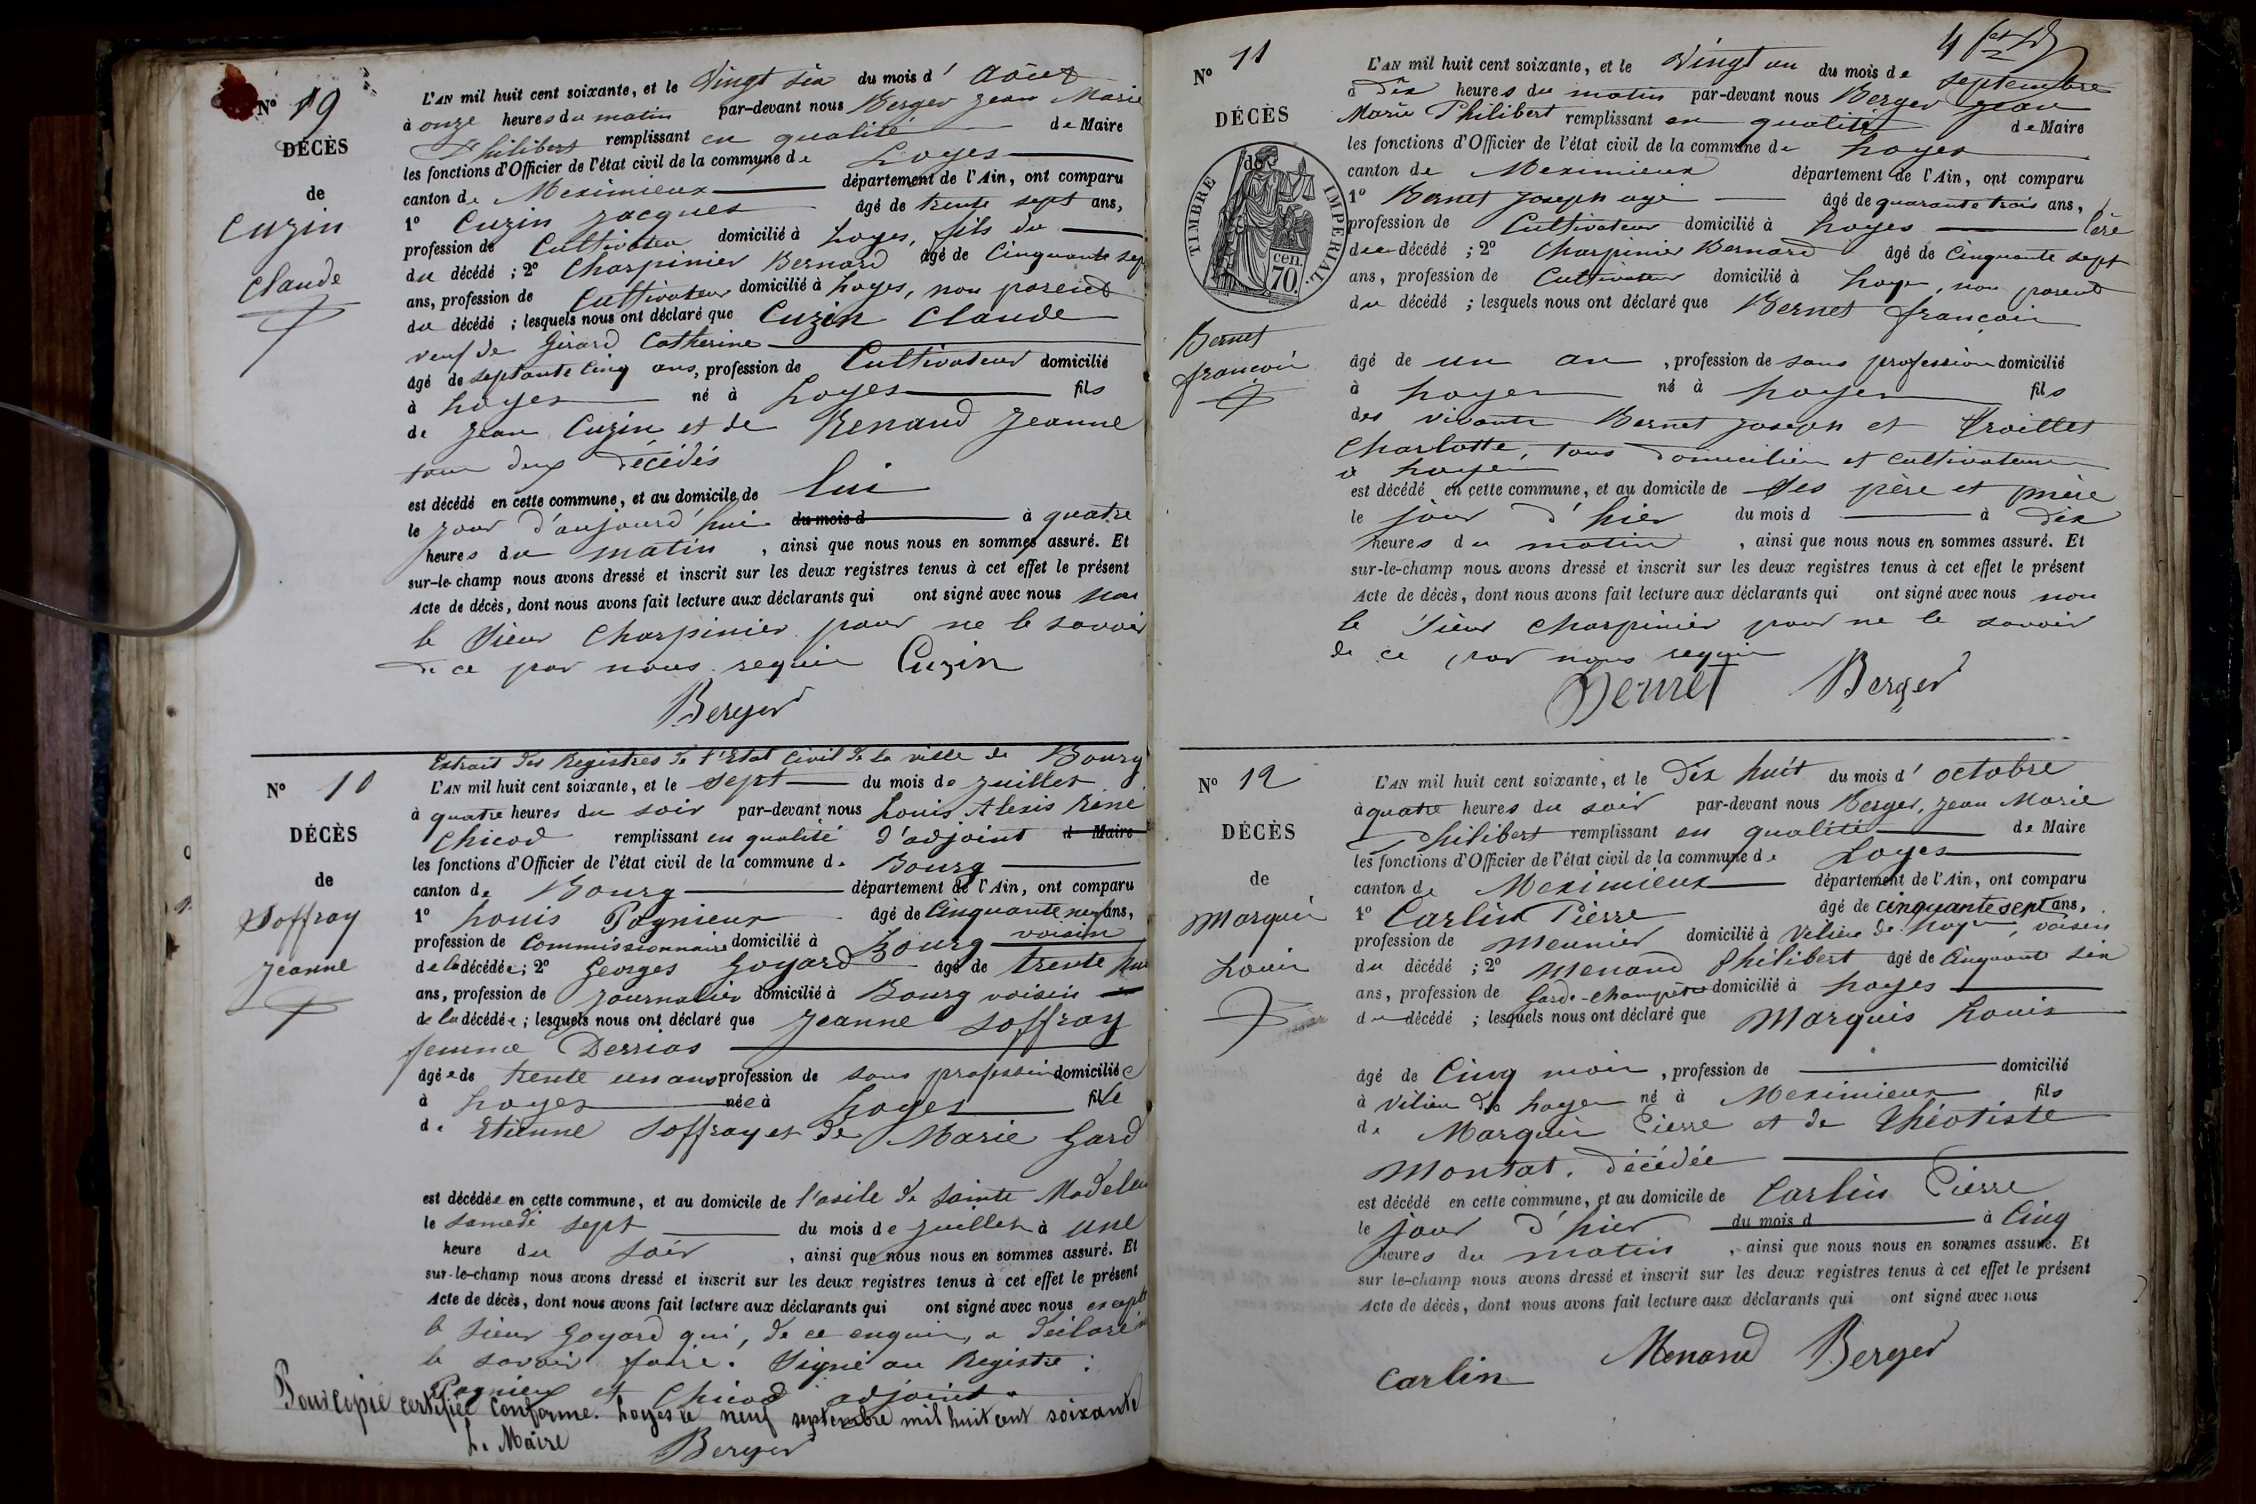 N° 19
DÉCÈS
de
Cuzin
Claude
L'AN mil huit cent soixante, et le Vingt six du mois d' Août
à onze heures du matin par-devant nous Berger Jean Marie
Philibert remplissant en qualité de Maire
les fonctions d'Officier de l'état civil de la commune de Loyes
canton de Meximieux département de l'Ain, ont comparu
1° Cuzin Jacques âgé de trente sept ans,
profession de Cultivateur domicilié à Loyes, fils du
du décédé ; 2° Charpinier Bernard âgé de Cinquante sept
ans, profession de Cultivateur domicilié à Loyes, non parent
du décédé ; lesquels nous ont déclaré que Cuzin Claude
veuf de Girard Catherine
âgé de septante cinq ans, profession de Cultivateur domicilié
à Loyes né à Loyes fils
de Jean Cuzin et de Renaud Jeanne
tous deux décédés
est décédé en cette commune, et au domicile de lui
le jour d'aujourd'hui du mois d à quatre
heures du matin , ainsi que nous nous en sommes assuré. Et
sur-le-champ nous avons dressé et inscrit sur les deux registres tenus à cet effet le présent
Acte de décès, dont nous avons fait lecture aux déclarants qui ont signé avec nous non
le Sieur Charpinier pour ne le savoir
de ce par nous requis Cuzin
Berger
N° 10
DÉCÈS
de
Soffray
Jeanne
Extrait des Registres de l'Etat Civil de la ville de Bourg
L'AN mil huit cent soixante, et le sept du mois de Juillet
à quatre heures du soir par-devant nous Louis Alexis René
Chicod remplissant en qualité d'adjoint d Maire
les fonctions d'Officier de l'état civil de la commune de Bourg
canton de Bourg département de l'Ain, ont comparu
1° Louis Pagnieux âgé de Cinquante neuf ans,
profession de Commissionnaire domicilié à Bourg voisin
de la décédée ; 2° Georges Goyard âgé de trente
ans, profession de Journalier domicilié à Bourg voisin
de la décédée ; lesquels nous ont déclaré que Jeanne Soffray
femme Derrias
âgée de trente un ans profession de sans profession domiciliée
à Loyes née à Loyes fille
de Etienne Soffray et de Marie Gard
est décédée en cette commune, et au domicile de l'asile de Sainte Madeleine
le samedi sept du mois de Juillet à une
heure du soir , ainsi que nous nous en sommes assuré. Et
sur-le-champ nous avons dressé et inscrit sur les deux registres tenus à cet effet le présent
Acte de décès, dont nous avons fait lecture aux déclarants qui ont signé avec nous excepté
le sieur Goyard qui, de ce enquis, a déclaré
le savoir faire. Signé au Registre :
Pagnieux et Chicod adjoint
Pour copie certifiée conforme. Loyes le neuf septembre mil huit cent soixante
Le Maire Berger
N° 11
DÉCÈS
de
TIMBRE IMPÉRIAL.
70 cen.
Bernet
françois
L'AN mil huit cent soixante, et le Vingt un du mois de septembre
à Dix heures du matin par-devant nous Berger Jean
Marie Philibert remplissant en qualité de Maire
les fonctions d'Officier de l'état civil de la commune de Loyes
canton de Meximieux département de l'Ain, ont comparu
1° Bernet Joseph agé âgé de quarante trois ans,
profession de Cultivateur domicilié à Loyes père
du décédé ; 2° Charpinier Bernard âgé de Cinquante sept
ans, profession de Cultivateur domicilié à Loyes, non parent
du décédé ; lesquels nous ont déclaré que Bernet françois
âgé de un an , profession de sans profession domicilié
à Loyes né à Loyes fils
des vivants Bernet Joseph et Troillet
Charlotte, tous domiciliés et cultivateurs
à Loyes
est décédé en cette commune, et au domicile de ses père et mère
le jour d'hier du mois d à dix
heures du matin , ainsi que nous nous en sommes assuré. Et
sur-le-champ nous avons dressé et inscrit sur les deux registres tenus à cet effet le présent
Acte de décès, dont nous avons fait lecture aux déclarants qui ont signé avec nous non
le Sieur Charpinier pour ne le savoir
de ce par nous requis
Bernet Berger
N° 12
DÉCÈS
de
Marquis
Louis
L'AN mil huit cent soixante, et le Dix huit du mois d' octobre
à quatre heures du soir par-devant nous Berger, Jean Marie
Philibert remplissant en qualité de Maire
les fonctions d'Officier de l'état civil de la commune de Loyes
canton de Meximieux département de l'Ain, ont comparu
1° Carlin Pierre âgé de cinquante sept ans,
profession de Meunier domicilié à Vilieu de Loyes, voisin
du décédé ; 2° Menand Philibert âgé de Cinquante six
ans, profession de Garde-champêtre domicilié à Loyes
du décédé ; lesquels nous ont déclaré que Marquis Louis
âgé de Cinq mois , profession de domicilié
à Vilieu de Loyes né à Meximieux fils
de Marquis Pierre et de Théotiste
Montat. décédée
est décédé en cette commune, et au domicile de Carlin Pierre
le jour d'hier du mois d à Cinq
heures du matin , ainsi que nous nous en sommes assuré. Et
sur le-champ nous avons dressé et inscrit sur les deux registres tenus à cet effet le présent
Acte de décès, dont nous avons fait lecture aux déclarants qui ont signé avec nous
Carlin Menand Berger